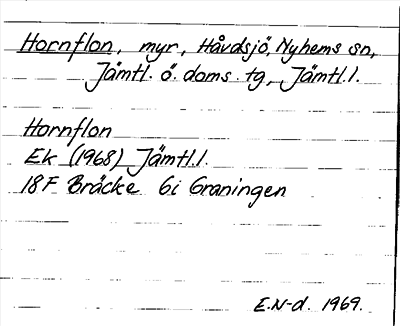 Hornflon, myr, Håvdsjö, Nyhems sn,
Jämtl. ö. doms. tg, Jämtl.l.
Hornflon
Ek (1968) Jämtl.l.
18F Bräcke 6i Graningen
E.N-d. 1969.